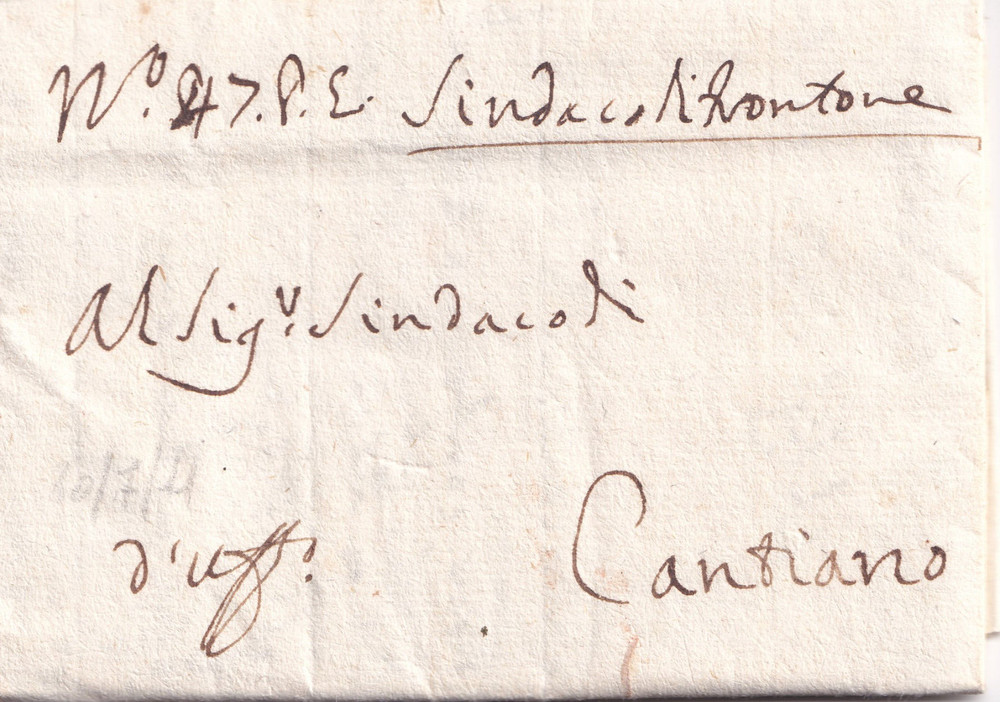 N.º 247. P. E. Sindaco di Frontone
Al Sig.r Sindaco di
d'uff.o
Cantiano